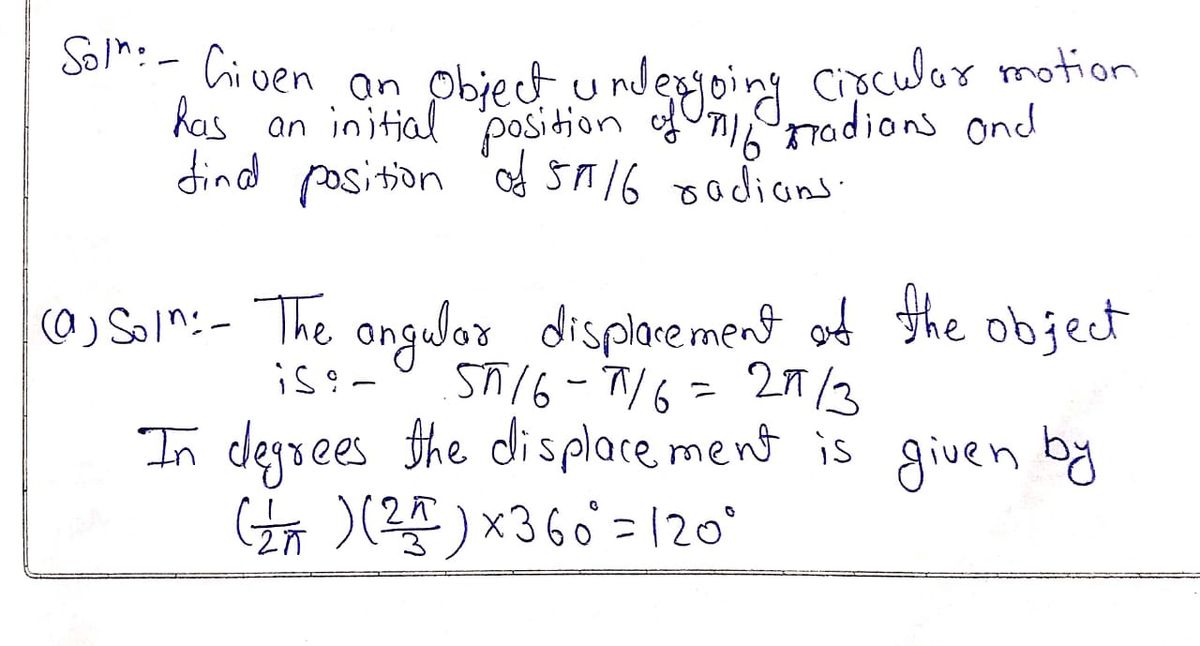 Soln:- Given an Object undergoing Circular motion
has an initial position of π/6 radians and
find position of 5π/6 radians.
(a) Soln:- The angular displacement of the object
is:- 5π/6 - π/6 = 2π/3
In degrees the displacement is given by
(1/2π)(2π/3) ×360° = 120°